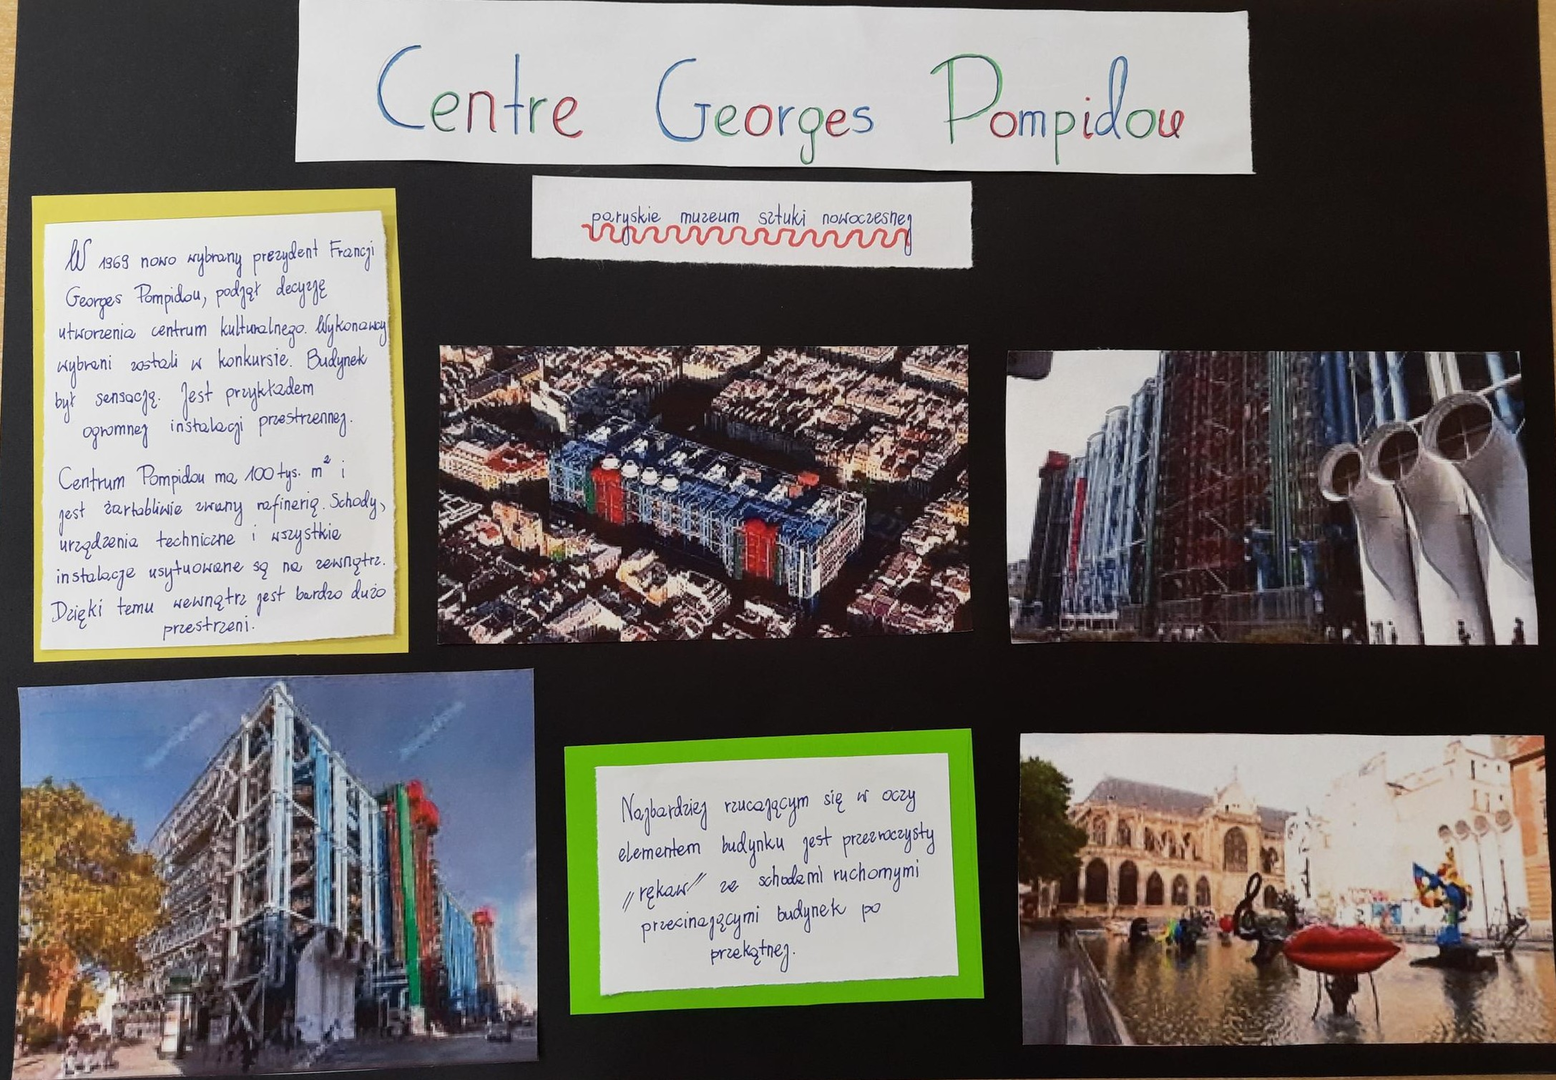 Centre Georges Pompidou
paryskie muzeum sztuki nowoczesnej
W 1969 nowo wybrany prezydent Francji
Georges Pompidou, podjął decyzję
utworzenia centrum kulturalnego. Wykonawcy
wybrani zostali w konkursie. Budynek
był sensacją. Jest przykładem
ogromnej instalacji przestrzennej.
Centrum Pompidou ma 100 tys. m² i
jest żartobliwie zwany rafinerią. Schody,
urządzenia techniczne i wszystkie
instalacje usytuowane są na zewnątrz.
Dzięki temu wewnątrz jest bardzo dużo
przestrzeni.
Najbardziej rzucającym się w oczy
elementem budynku jest przezroczysty
"rękaw" ze schodami ruchomymi
przecinającymi budynek po
przekątnej.